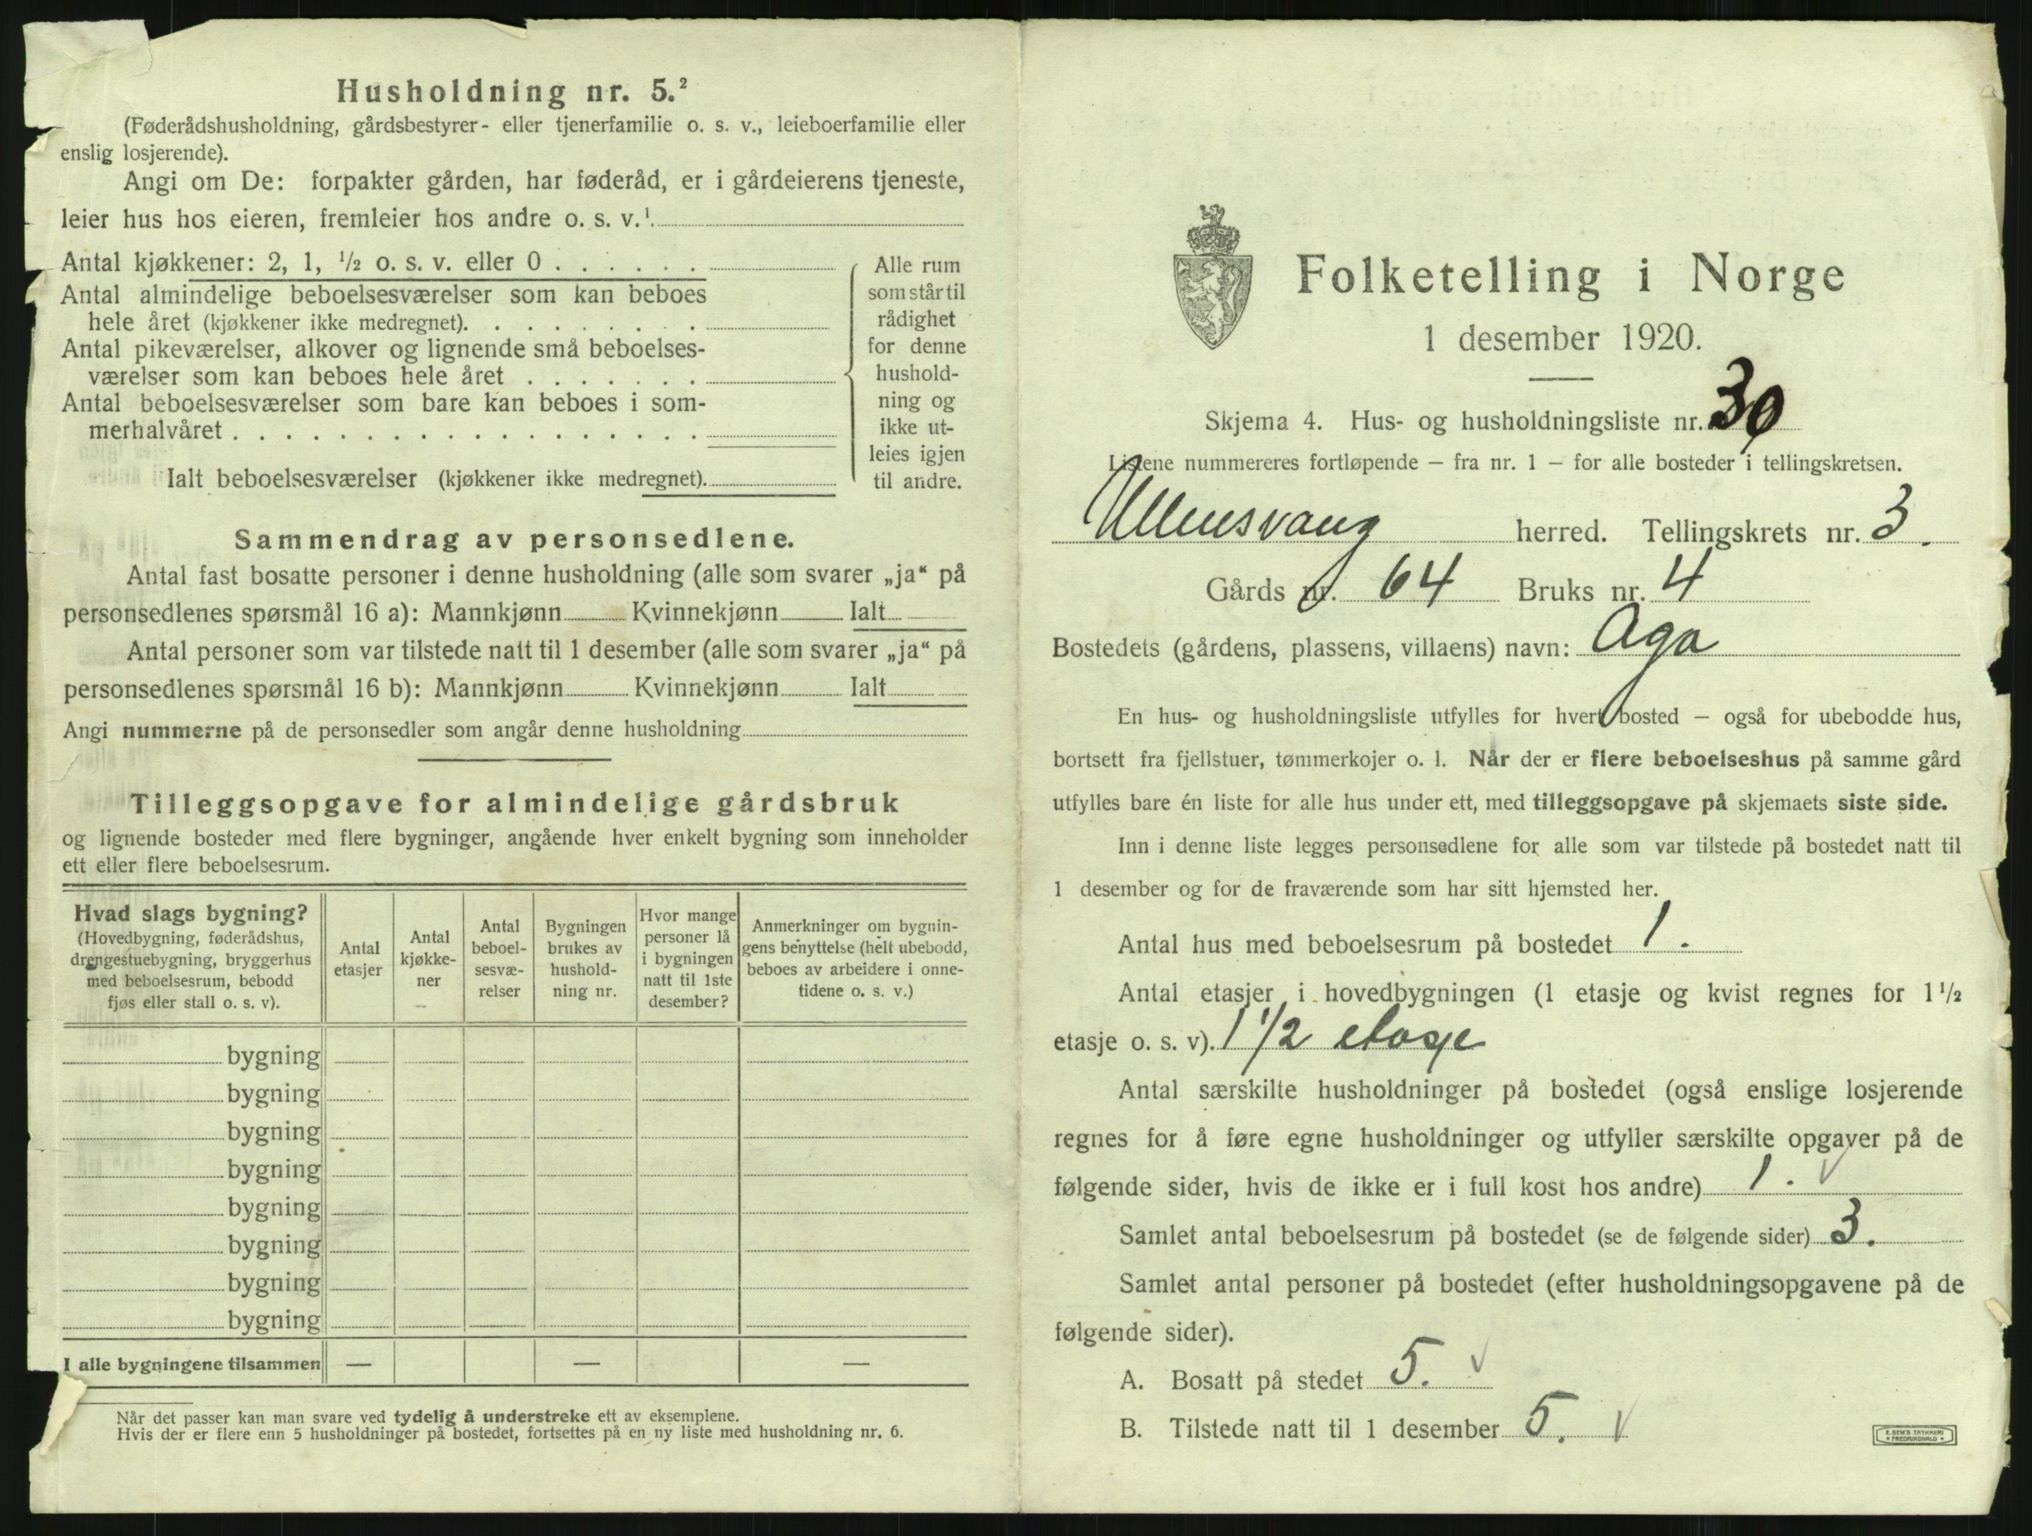 Husholdning nr. 5.²
(Føderådshusholdning, gårdsbestyrer- eller tjenerfamilie o. s. v., leieboerfamilie eller
enslig losjerende).
Angi om De: forpakter gården, har føderåd, er i gårdeierens tjeneste,
leier hus hos eieren, fremleier hos andre o. s. v.¹
Antal kjøkkener: 2, 1, ½ o. s. v. eller 0 . . . . . .
Antal almindelige beboelsesværelser som kan beboes
hele året (kjøkkener ikke medregnet). . . . . . . . .
Antal pikeværelser, alkover og lignende små beboelses-
værelser som kan beboes hele året . . . . . . .
Antal beboelsesværelser som bare kan beboes i som-
merhalvåret . . . . . . . . . . . . . . . . . .
Ialt beboelsesværelser (kjøkkener ikke medregnet).
Alle rum
som står til
rådighet
for denne
hushold-
ning og
ikke ut-
leies igjen
til andre.
Sammendrag av personsedlene.
Antal fast bosatte personer i denne husholdning (alle som svarer „ja“ på
personsedlenes spørsmål 16 a): Mannkjønn Kvinnekjønn Ialt
Antal personer som var tilstede natt til 1 desember (alle som svarer „ja“ på
personsedlenes spørsmål 16 b): Mannkjønn Kvinnekjønn Ialt
Angi nummerne på de personsedler som angår denne husholdning
Tilleggsopgave for almindelige gårdsbruk
og lignende bosteder med flere bygninger, angående hver enkelt bygning som inneholder
ett eller flere beboelsesrum.
Hvad slags bygning?
(Hovedbygning, føderådshus,
drengestuebygning, bryggerhus
med beboelsesrum, bebodd
fjøs eller stall o. s. v).
Antal
etasjer
Antal
kjøkke-
ner
Antal
beboel-
sesvæ-
relser
Bygningen
brukes av
hushold-
ning nr.
Hvor mange
personer lå
i bygningen
natt til 1ste
desember?
Anmerkninger om bygnin-
gens benyttelse (helt ubebodd,
beboes av arbeidere i onne-
tidene o. s. v.)
bygning
bygning
bygning
bygning
bygning
bygning
bygning
bygning
I alle bygningene tilsammen — — —
Når det passer kan man svare ved tydelig å understreke ett av eksemplene.
Hvis der er flere enn 5 husholdninger på bostedet, fortsettes på en ny liste med husholdning nr. 6.
Folketelling i Norge
1 desember 1920.
Skjema 4. Hus- og husholdningsliste nr. 30
Listene nummereres fortløpende – fra nr. 1 – for alle bosteder i tellingskretsen.
Ullensvang herred. Tellingskrets nr. 3.
Gårds nr. 64 Bruks nr. 4
Bostedets (gårdens, plassens, villaens) navn: Aga
En hus- og husholdningsliste utfylles for hvert bosted – også for ubebodde hus,
bortsett fra fjellstuer, tømmerkojer o. l. Når der er flere beboelseshus på samme gård
utfylles bare én liste for alle hus under ett, med tilleggsopgave på skjemaets siste side.
Inn i denne liste legges personsedlene for alle som var tilstede på bostedet natt til
1 desember og for de fraværende som har sitt hjemsted her.
Antal hus med beboelsesrum på bostedet 1.
Antal etasjer i hovedbygningen (1 etasje og kvist regnes for 1½
etasje o. s. v). 1 1/2 etasje
Antal særskilte husholdninger på bostedet (også enslige losjerende
regnes for å føre egne husholdninger og utfyller særskilte opgaver på de
følgende sider, hvis de ikke er i full kost hos andre) 1. √
Samlet antal beboelsesrum på bostedet (se de følgende sider) 3.
Samlet antal personer på bostedet (efter husholdningsopgavene på de
følgende sider).
A. Bosatt på stedet 5. √
B. Tilstede natt til 1 desember 5. √
E. SEM'S TRYKKERI
• FREDRIKSHALD •